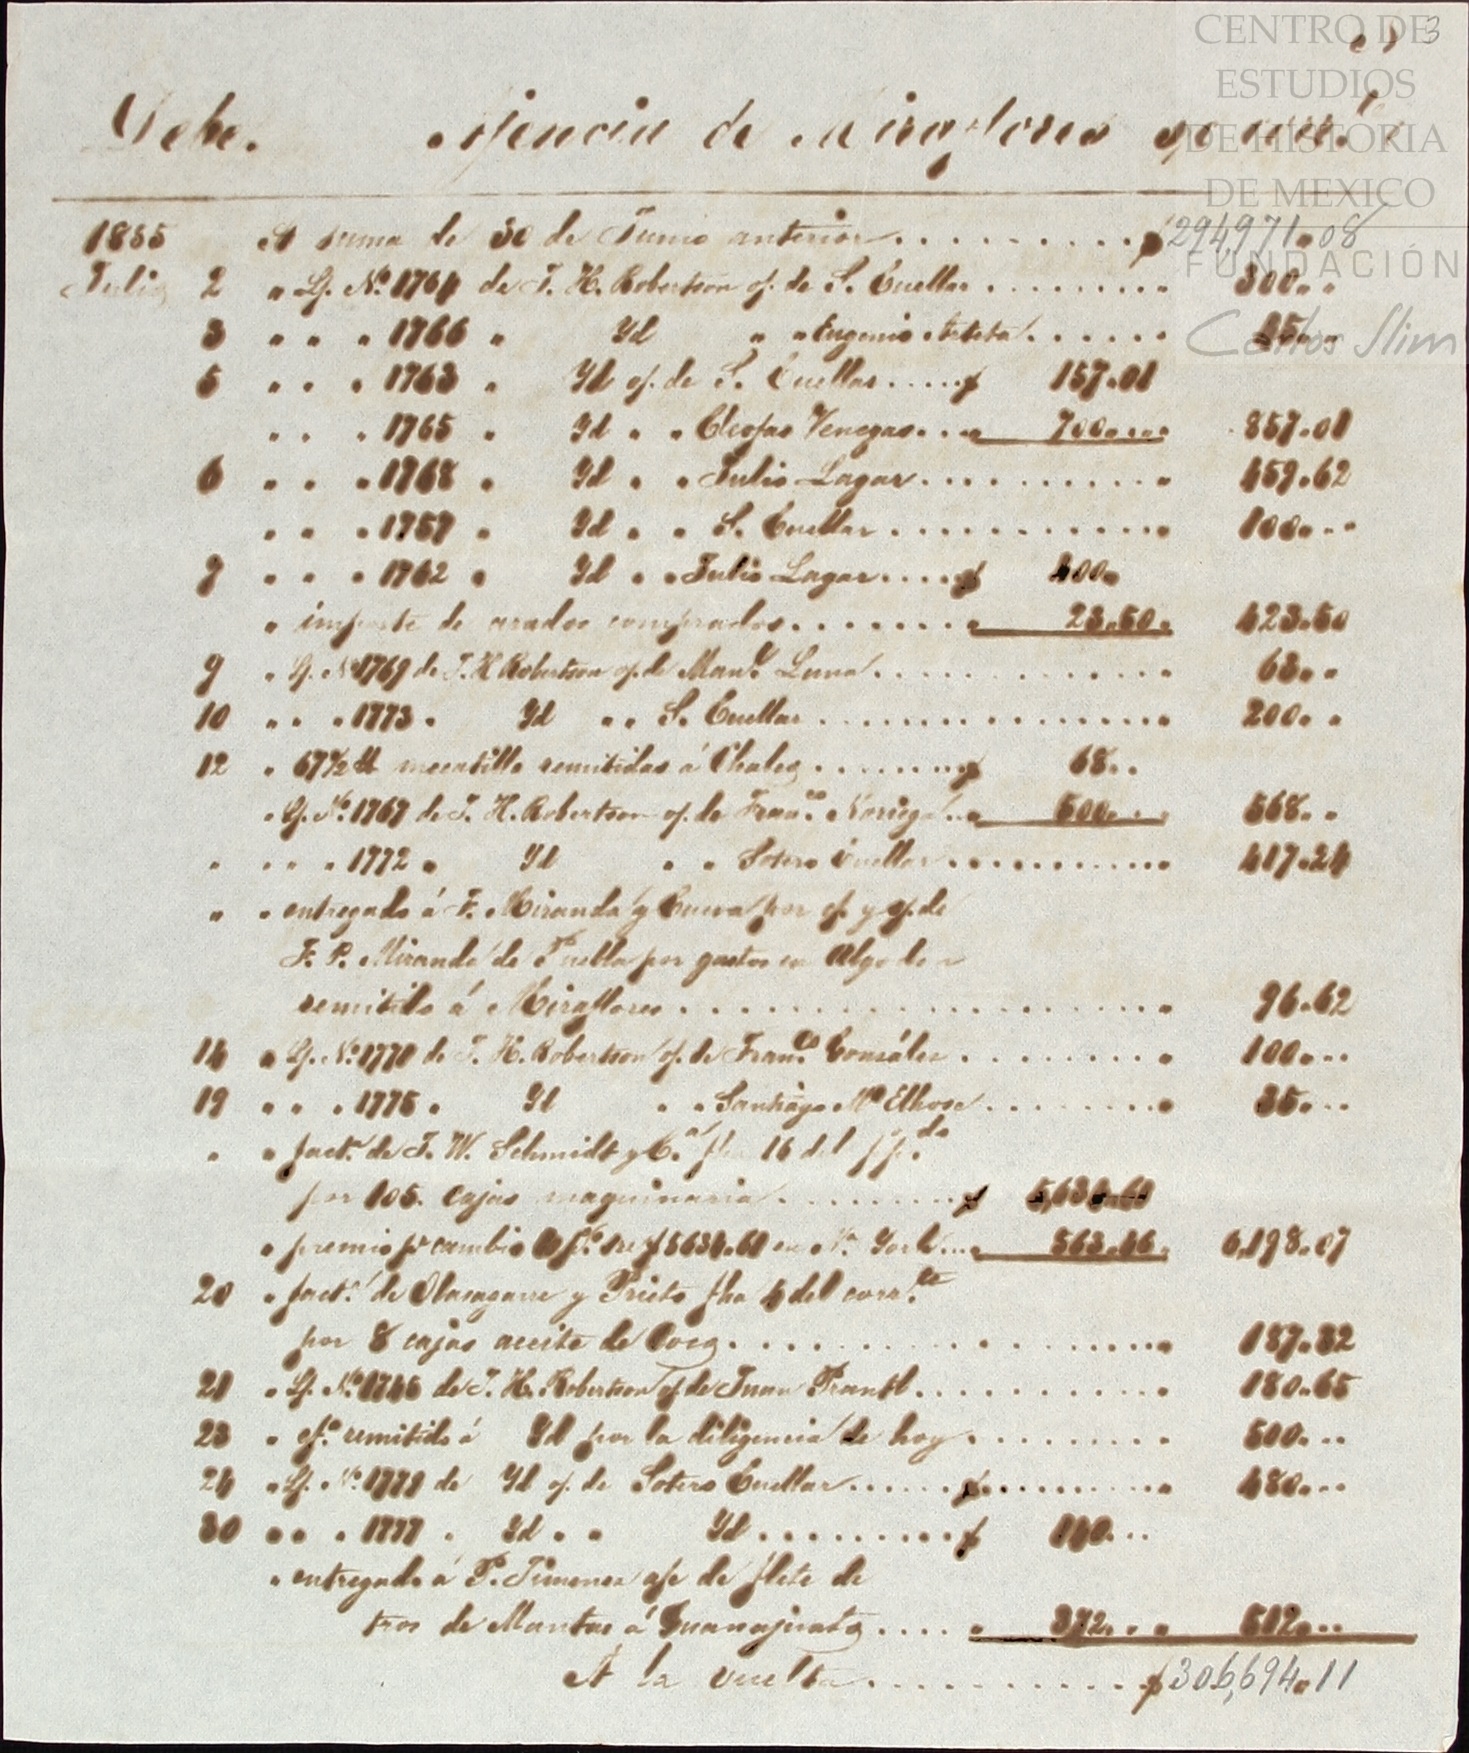 3
CENTRO DE
ESTUDIOS
DE HISTORIA
DE MEXICO
FUNDACIÓN
Carlos Slim
Debe. Agencia de Miraflores
1855 A suma de 30 de Junio anterior.......... $ 294,971.08
Julio 2 " Lf. No. 1764 de J. H. Robertson of. de S. Cuellar .......... 300..
3 " " " 1766 " Yd " " Eugenio ...... 
5 " " " 1763 " Yd of. de S. Cuellar.....$ 157.01
" " " 1765 " Yd " " Cleofas Venegas.... 700.... 857.01
6 " " " 1768 " Yd " " Julio Lagar.......... 459.62
" " " 1757 " Yd " " S. Cuellar .......... 100...
7 " " " 1762 " Yd " " Julio Lagar.....$ 400.
" importe de arados comprados.......... 23.50. 423.50
9 " Lf. No. 1769 de J. H. Robertson of. de Manl. Luna .......... 63..
10 " " " 1773. Yd " " S. Cuellar .......... 200..
12 " 67½ lb mecatillo remitidas á Chalco .........$ 68..
" Lf. No. 1767 de J. H. Robertson of. de Franco. Noriega... 500... 568..
" " " " 1772 " Yd " " Sotero Cuellar .......... 417.24
" " entregado á F. Miranda y Cueva por of. y of. de
F. P. Miranda de Puebla por gastos en Algodon
remitido á Miraflores .......... 96.62
14 " Lf. No. 1770 de J. H. Robertson of. de Franco. González .......... 100...
19 " " " 1775. Yd " " Santiago Ma Elhose .......... 35...
" " fact. de J. W. Schmidt y Ca. fha 16 del ppdo.
por 105. cajas maquinaria .........$ 5,634.61
" premio pr cambio 10 p% sre $5634.61 en N. York... 563.46. 6,198.07
20 " fact. de Olasagarre y Prieto fha 4 del corrte.
por 8 cajas aceite de Coco .......... 187.32
21 " Lf. No. 1746 de J. H. Robertson of. de Juan Prantl .......... 180.65
23 " ef. remitido á Yd por la diligencia de hoy .......... 500...
24 " Lf. No. 1779 de Yd of. de Sotero Cuellar .......... 480...
30 " " " 1777 . Yd " " Yd ..........$ 140...
" entregado á P. Jimenez a/c de flete de
tros de Mantas á Guanajuato..... 372... 512...
A la vuelta ..........$ 306,694.11